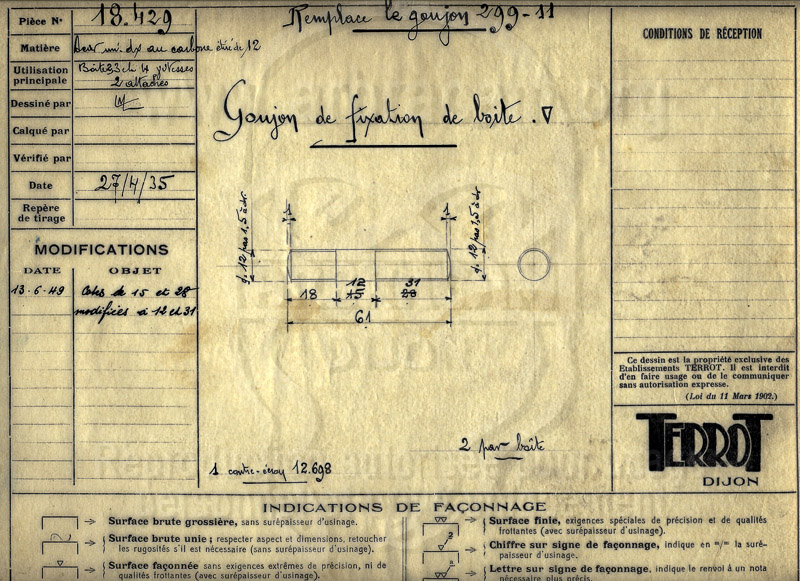 Pièce N° 18.429
Matière Acier mi.dx au carbone étiré de 12
Utilisation principale Boîte 2,3 ch 4 vitesses
2 attaches
Dessiné par
Calqué par
Vérifié par
Date 27/4/35
Repère de tirage
MODIFICATIONS
DATE OBJET
13-6-49 Cotes de 15 et 28
modifiées à 12 et 31
Remplace le goujon 299-11
Goujon de fixation de boîte. ∇
1
1
d. 12 pas 1,5 à dr.
d. 12 pas 1,5 à dr.
12 31
18 15 28
61
2 par boîte
1 contre-écrou 12.698
CONDITIONS DE RÉCEPTION
Ce dessin est la propriété exclusive des
Etablissements TERROT. Il est interdit
d'en faire usage ou de le communiquer
sans autorisation expresse.
(Loi du 11 Mars 1902.)
TERROT
DIJON
INDICATIONS DE FAÇONNAGE
Surface brute grossière, sans surépaisseur d'usinage.
Surface brute unie ; respecter aspect et dimensions, retoucher
les rugosités s'il est nécessaire (sans surépaisseur d'usinage).
Surface façonnée sans exigences extrêmes de précision, ni de
qualités frottantes (avec surépaisseur d'usinage).
Surface finie, exigences spéciales de précision et de qualités
frottantes (avec surépaisseur d'usinage).
2
Chiffre sur signe de façonnage, indique en m/m la suré-
paisseur d'usinage.
Lettre sur signe de façonnage, indique le renvoi à un nota
nécessaire plus précis.